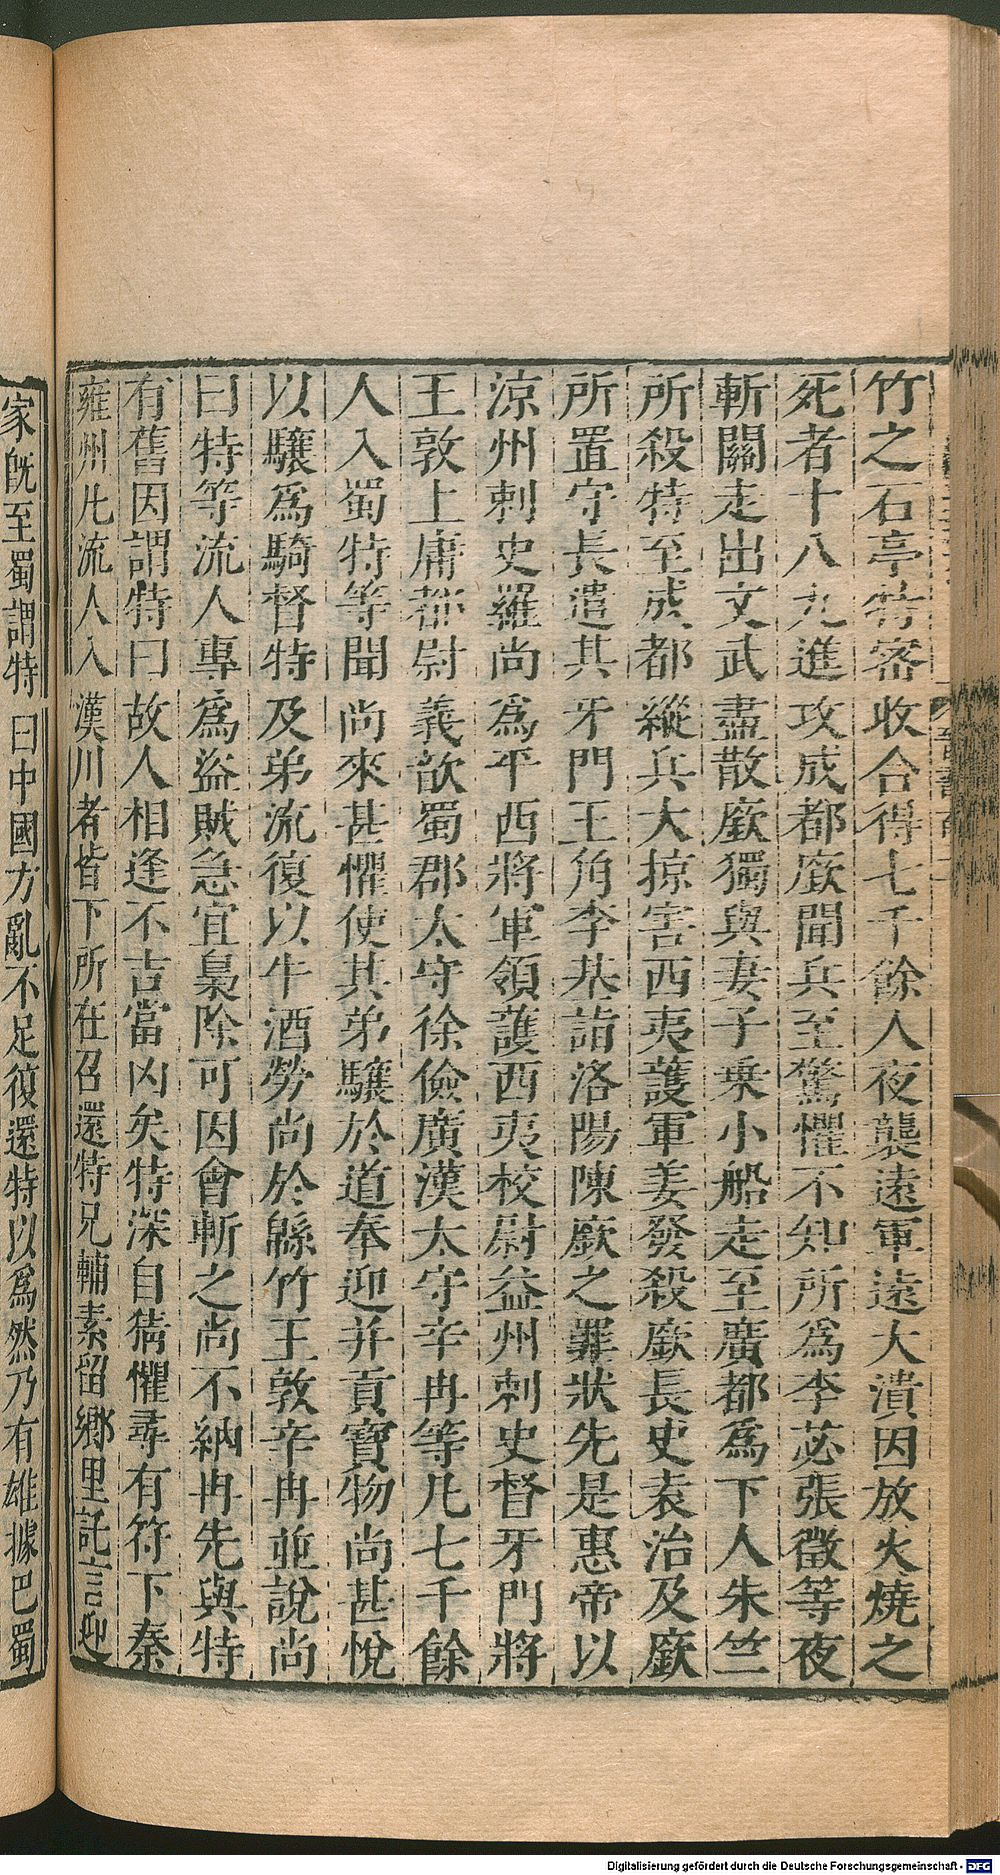 竹之石亭特密收合得七千餘人夜襲遠軍遠大潰因放火燒之
死者十八九進攻成都廞聞兵至驚懼不知所爲李苾張徵等夜
斬關走出文武盡散廞獨與妻子乗小船走至廣都爲下人朱竺
所殺特至成都縱兵大掠害西夷護軍姜發殺廞長史袁治及廞
所置守長遣其牙門王角李基詣洛陽陳廞之罪狀先是惠帝以
涼州刺史羅尚爲平西將軍領護西夷校尉益州刺史督牙門將
王敦上庸都尉義歆蜀郡太守徐儉廣漢太守辛冉等凡七千餘
人入蜀特等聞尚來甚懼使其弟驤於道奉迎并貢寶物尚甚悅
以驤爲騎督特及弟流復以牛酒勞尚於緜竹王敦辛冉並說尚
曰特等流人專爲盜賊急宜梟除可因會斬之尚不納冉先與特
有舊因謂特曰故人相逢不吉當凶矣特深自猜懼尋有符下秦
雍州凡流人入漢川者皆下所在召還特兄輔素留鄉里託言迎
家旣至蜀謂特曰中國方亂不足復還特以爲然乃有雄據巴蜀
Digitalisierung gefördert durch die Deutsche Forschungsgemeinschaft - DFG